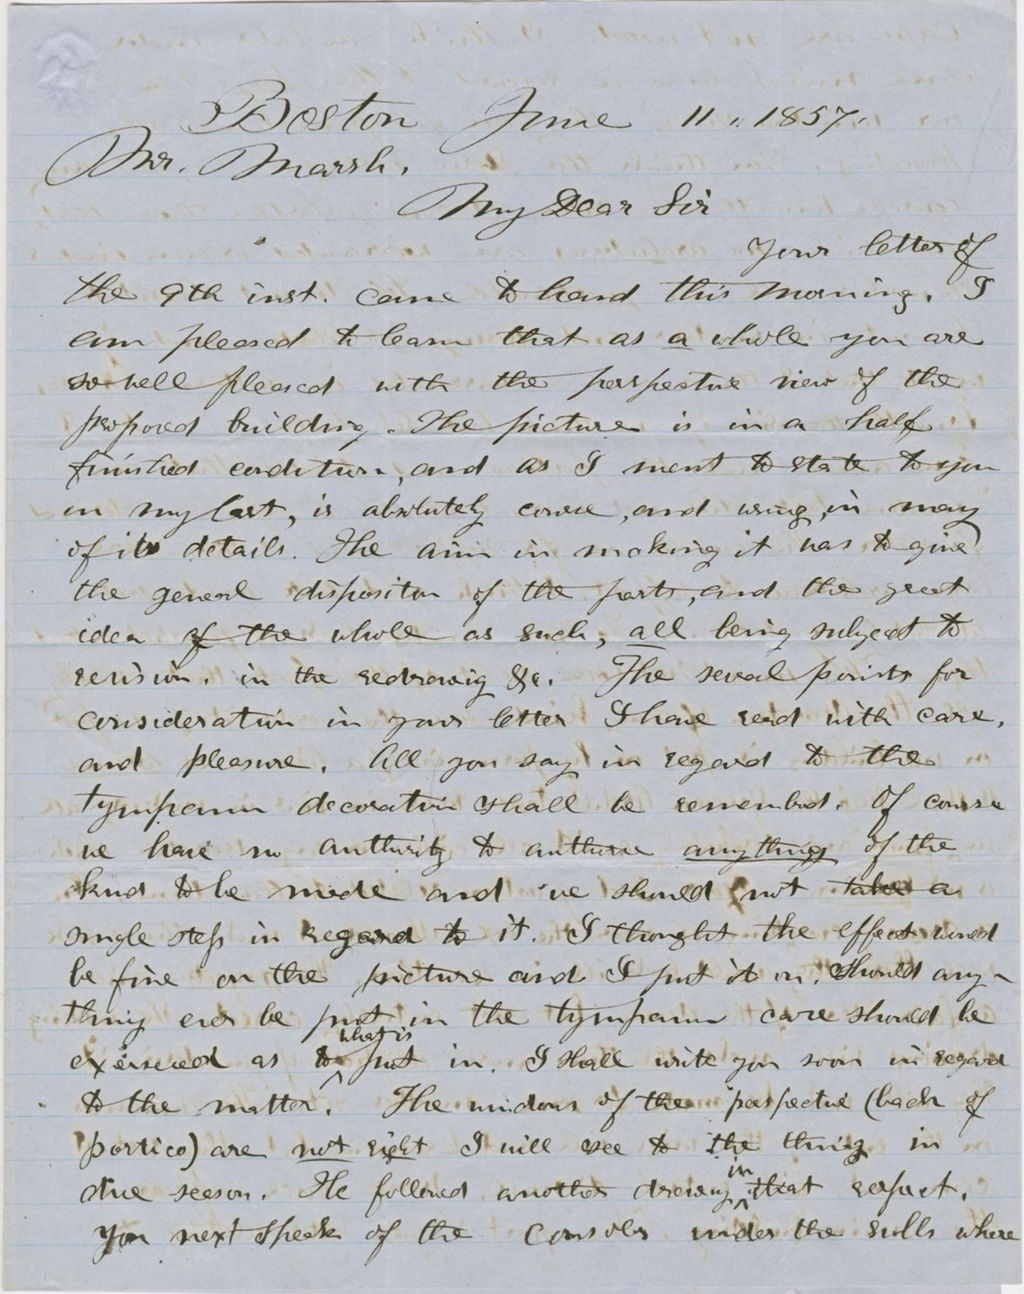 Boston June 11. 1857.
Mr. Marsh.
My Dear Sir
Your letter of
the 9th inst. came to hand this morning. I
am pleased to learn that as a whole you are
so well pleased with the perspective view of the
proposed building. The picture is in a half
finished condition, and as I ment to state to you
in my last, is absolutely coarse, and wrong, in many
of its details. The aim in making it was to give
the general disposition of the parts, and the great
idea of the whole as such, all being subject to
revision. in the redrawing &c. The several points for
consideration in your letter I have read with care,
and pleasure. All you say in regard to the
tympanum decoration shall be remembered. Of course
we have no authority to authorise anything of the
kind to be made and we should not take a
single step in regard to it. I thought the effect would
be fine on the picture and I put it on. Should any-
thing ever be put in the tympanum care should be
exersised as to what is put in. I shall write you soon in regard
to the matter. The windows of the perspective (back of
portico) are not right I will see to the thing in
due season. He followed another drawing in that respect.
You next speak of the consoles under the sills where